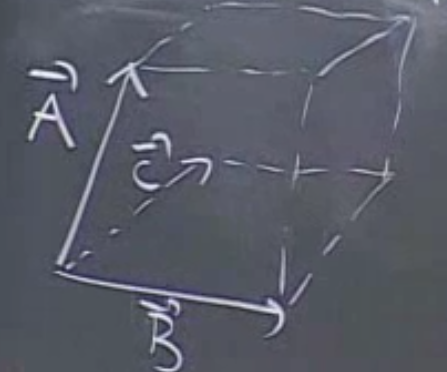 A⃗
C⃗
B⃗